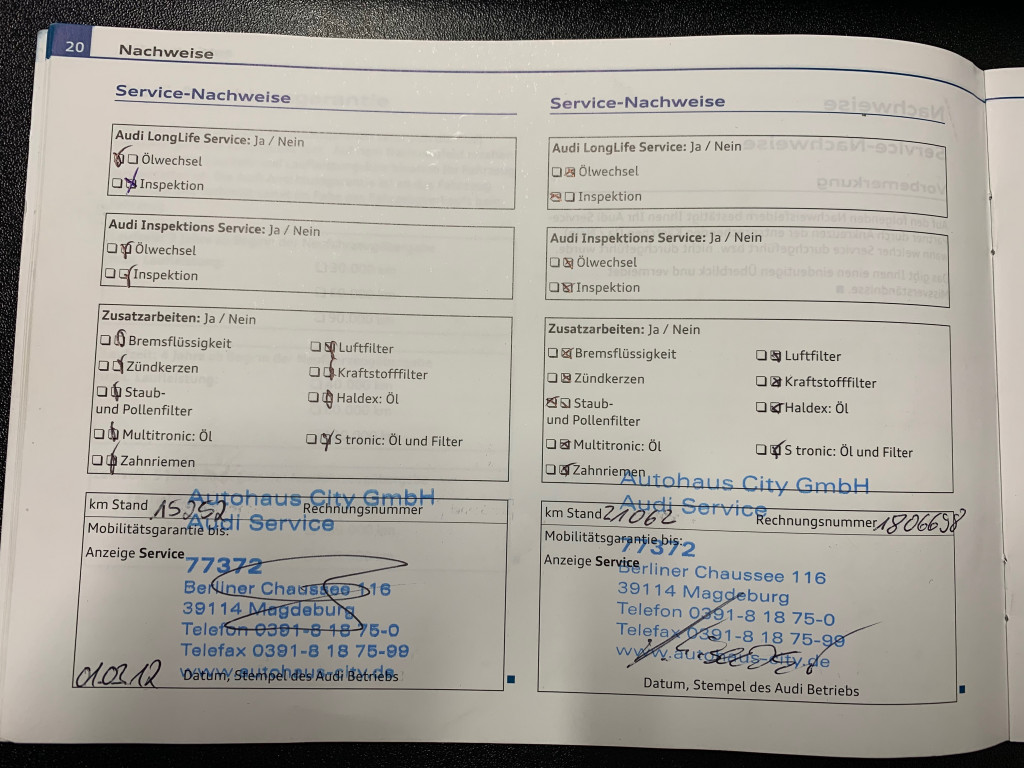 20
Nachweise
Service-Nachweise
Audi LongLife Service: Ja / Nein
Ölwechsel
Inspektion
Audi Inspektions Service: Ja / Nein
Ölwechsel
Inspektion
Zusatzarbeiten: Ja / Nein
Bremsflüssigkeit
Luftfilter
Zündkerzen
Kraftstofffilter
Staub-
und Pollenfilter
Haldex: Öl
Multitronic: Öl
S tronic: Öl und Filter
Zahnriemen
Autohaus City GmbH
km Stand 15252 Rechnungsnummer
Audi Service
Mobilitätsgarantie bis:
Anzeige Service
77372
Berliner Chaussee 116
39114 Magdeburg
Telefon 0391-8 18 75-0
Telefax 0391-8 18 75-99
www.autohaus-city.de
01.03.12 Datum, Stempel des Audi Betriebs
Service-Nachweise
Audi LongLife Service: Ja / Nein
Ölwechsel
Inspektion
Audi Inspektions Service: Ja / Nein
Ölwechsel
Inspektion
Zusatzarbeiten: Ja / Nein
Bremsflüssigkeit
Luftfilter
Zündkerzen
Kraftstofffilter
Staub-
und Pollenfilter
Haldex: Öl
Multitronic: Öl
S tronic: Öl und Filter
Zahnriemen
Autohaus City GmbH
Audi Service
km Stand 21062 Rechnungsnummer 1806698
Mobilitätsgarantie bis:
77372
Anzeige Service
Berliner Chaussee 116
39114 Magdeburg
Telefon 0391-8 18 75-0
Telefax 0391-8 18 75-99
www.autohaus-city.de
Datum, Stempel des Audi Betriebs